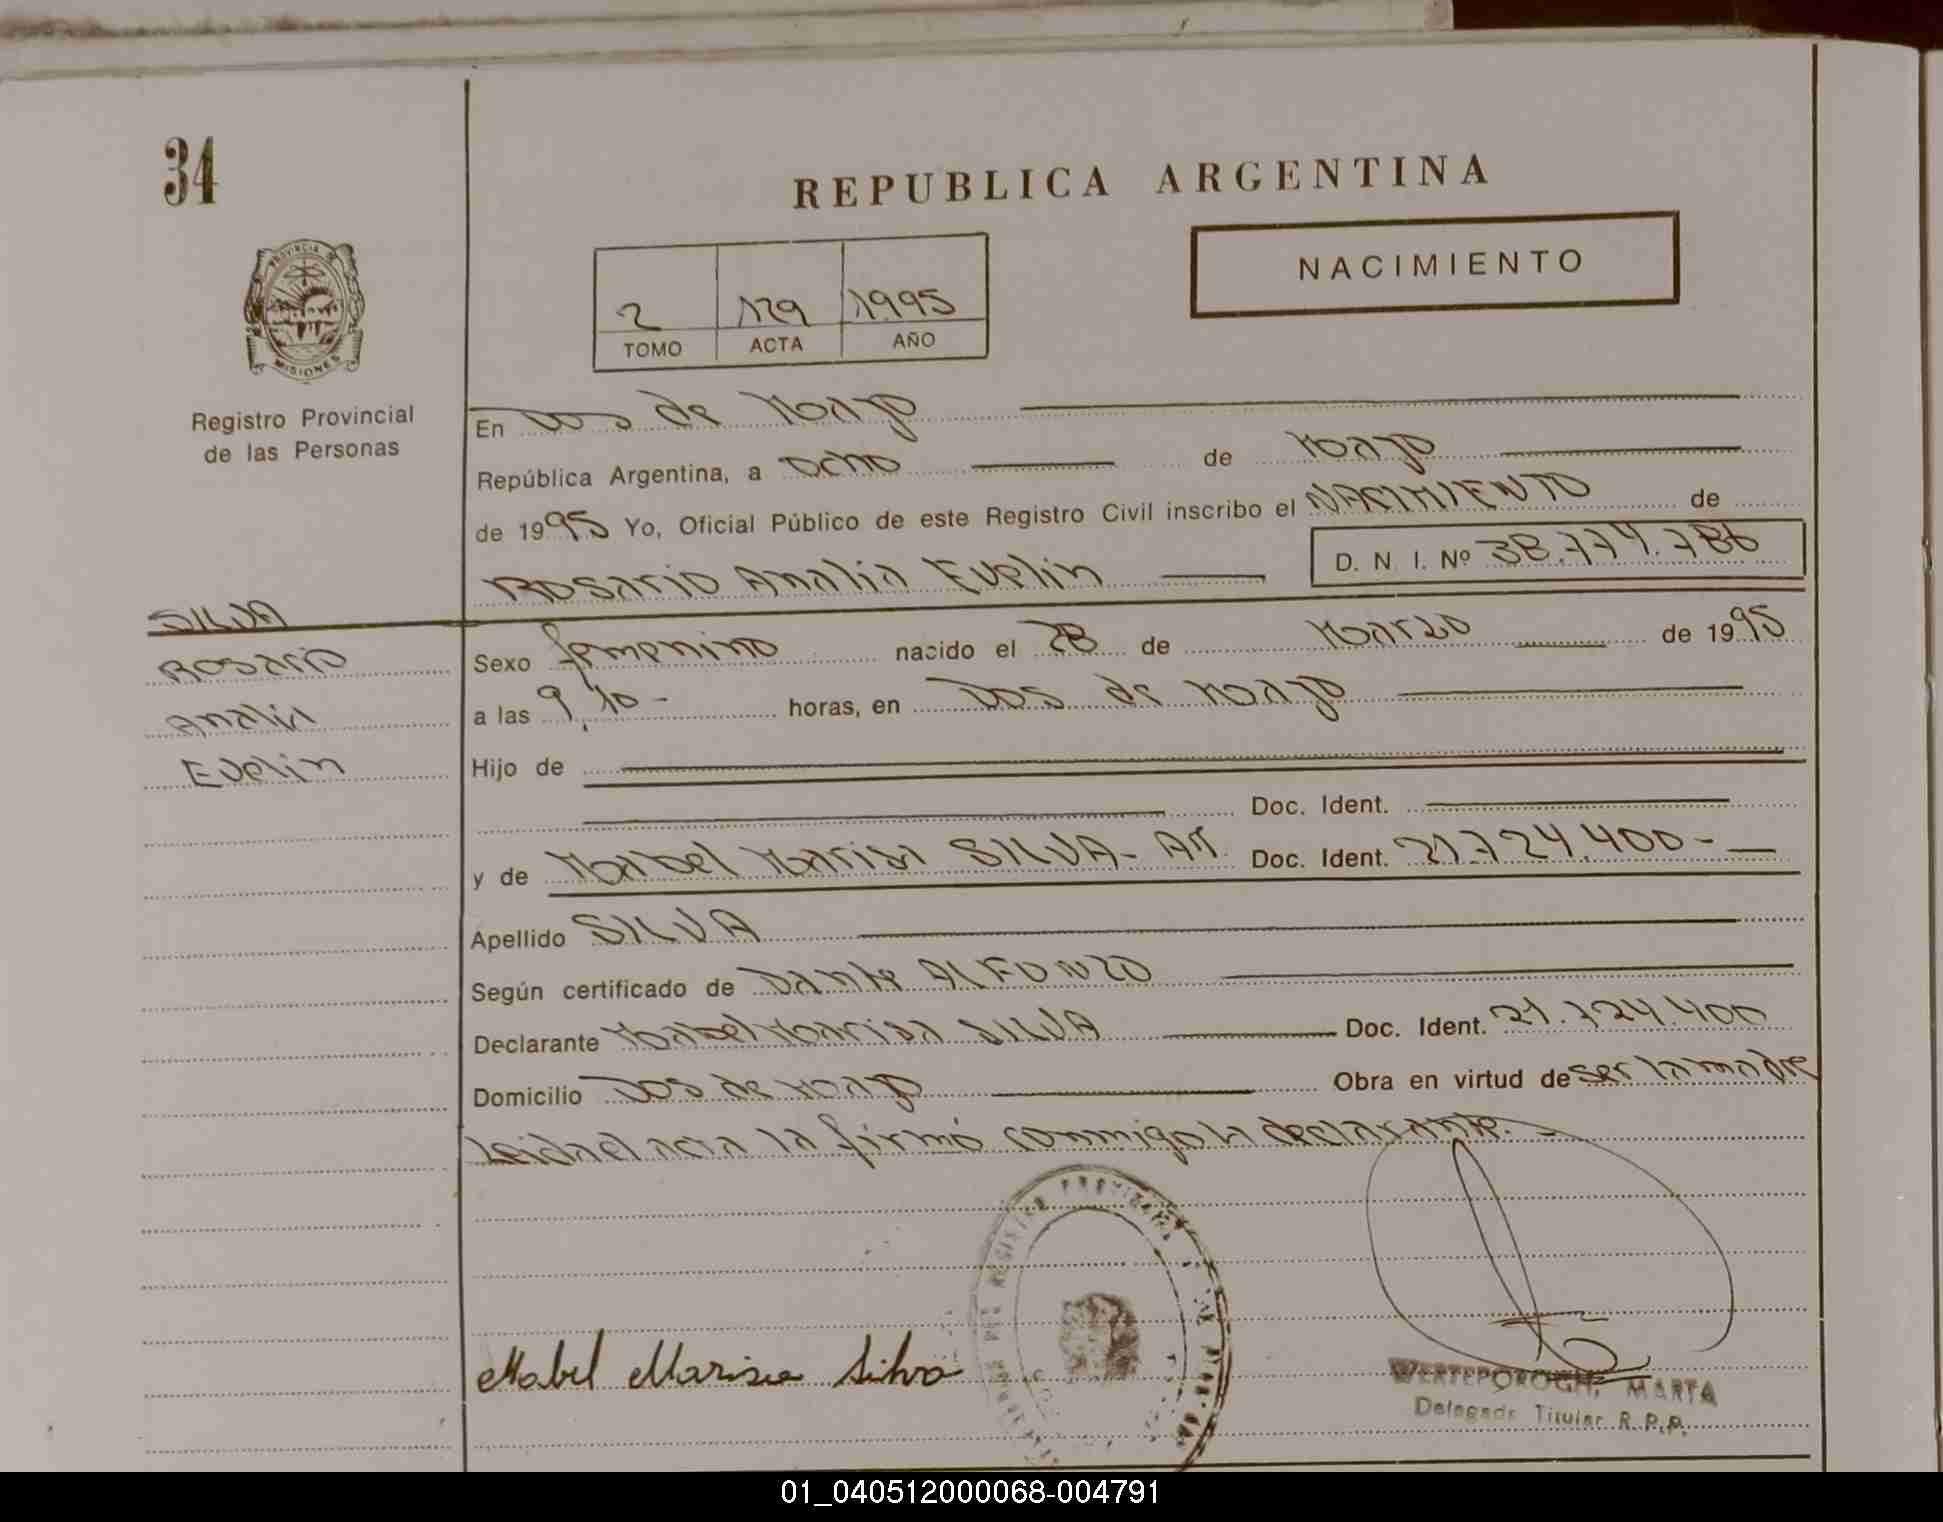 34
REPUBLICA ARGENTINA
NACIMIENTO
2 129 1995
TOMO ACTA AÑO
PROVINCIA DE
MISIONES
Registro Provincial
de las Personas
En Dos de Mayo
República Argentina, a ocho de Mayo
de 1995 Yo, Oficial Público de este Registro Civil inscribo el NACIMIENTO de
Rosario Amalia Evelin D. N. I. Nº 38.774.786
SILVA
Rosario
Amalia
Evelin
Sexo femenino nacido el 28 de Marzo de 1995
a las 9,10- horas, en Dos de Mayo
Hijo de
Doc. Ident.
y de Mabel Marisa SILVA- Ar. Doc. Ident. 21.724.400-
Apellido SILVA
Según certificado de Dante ALFONZO
Declarante Mabel Marisa SILVA Doc. Ident. 21.724.400
Domicilio Dos de Mayo Obra en virtud de ser la madre
Leida el acta la firmó conmigo la declarante.-
REGISTRO PROVINCIAL DE LAS PERSONAS
Mabel Marisa Silva
WERTEPOROGH, MARTA
Delegada Titular R.P.P.
01_040512000068-004791